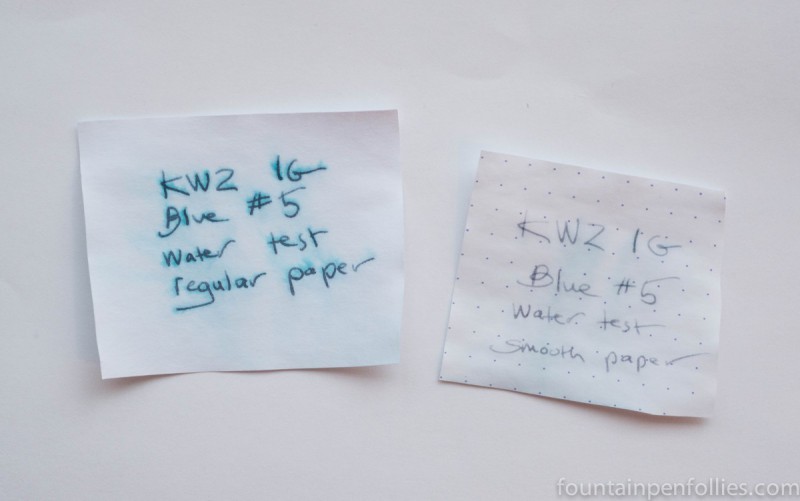 KWZ IG
Blue #5
Water test
regular paper
KWZ IG
Blue #5
Water test
Smooth paper
fountainpenfollies.com